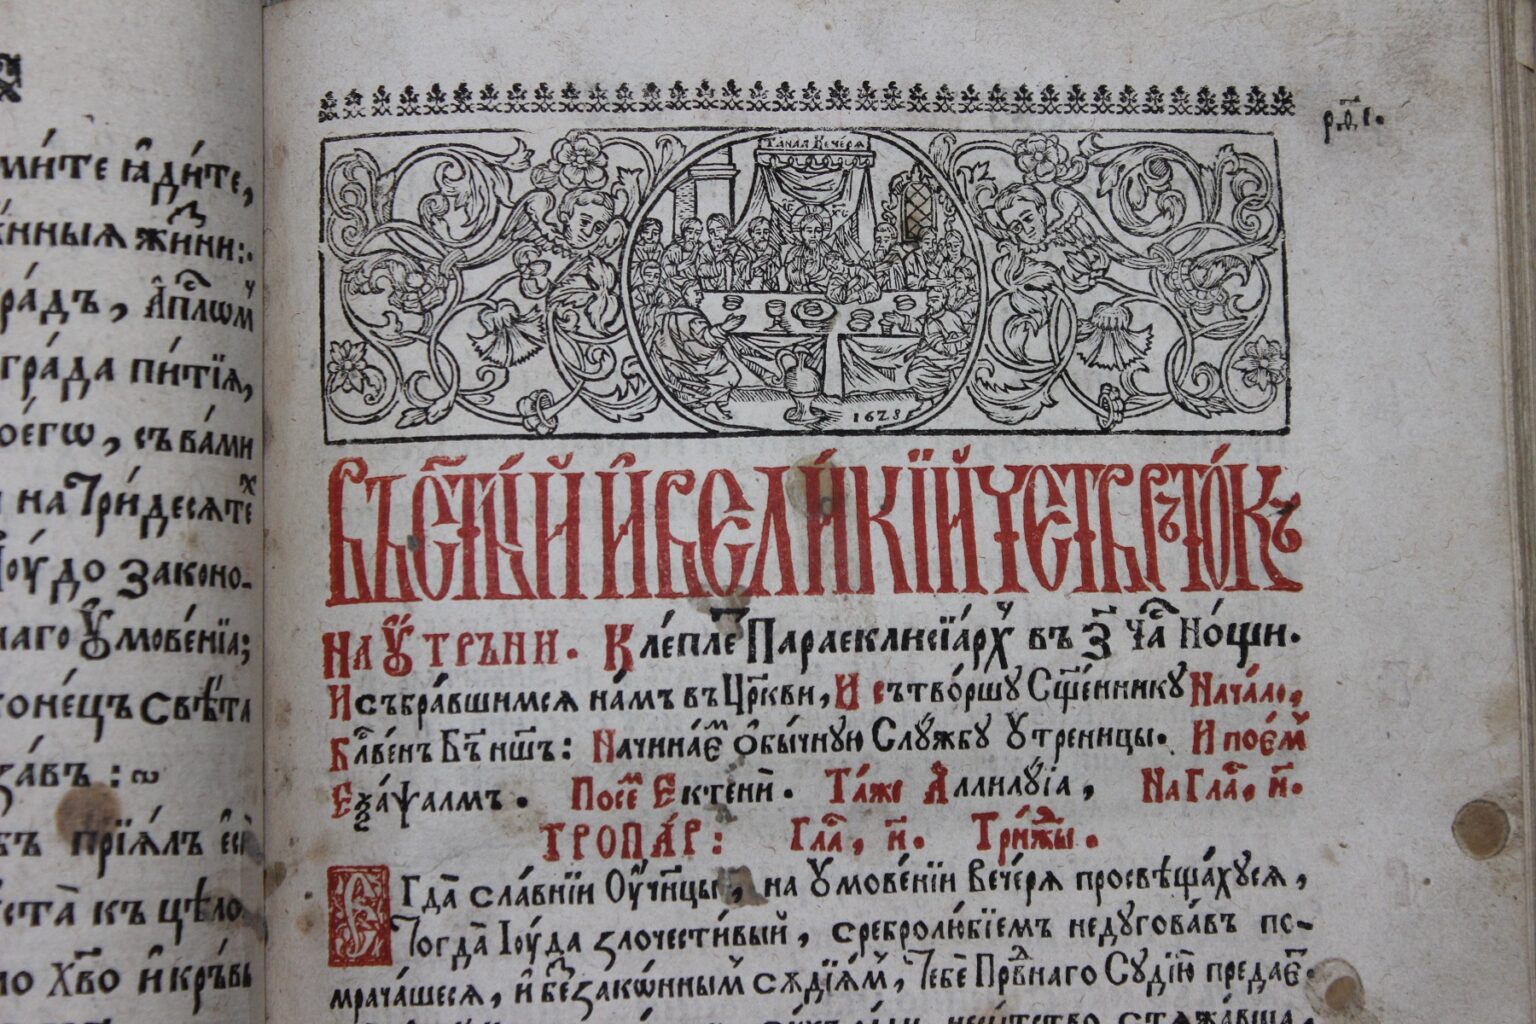 мѝте ꙗ҆ди́те,
жи́нныѧ жи́ни:
гра́дъ, А҆пⷭ҇лѡмⷱ҇
гра́да питїѧ̀,
ое́гѡ, съ ва́ми
и на Три́десѧтеⷯ
Іѹ́до законо-
наго Ѹ҆мове́нїа;
коне́цъ свѣ́та
за́въ :
бъ прїѧ́лъ є҆сѝ
оуста̀ къ цѣло
мо Хв҃о и҆ кръ́вь
рв҃і.
Танаа Вечерѧ
ІС ХС
1628
ВЪ СТ҃Ы́Й И҆ ВЕЛИ́КЇЙ ЧЕТВРЪТО́КЪ
На Ѹ҆трьни. Кле́пле Параекклисїа́рхⷱ҇ въ З҃ Ча́ⷭ҇ Но́щи.
И събра́вшимсѧ на́мъ въ Цр҃кви, И сътво́ршу Сщ҃е́ннику Нача́ло,
Бл҃ве́нъ Бг҃ъ нш҃ъ: Начина́еⷨ О҆бы́чную Слу́жбу Утреницы. И пое́мⷨ
Еѯа́ѱалмъ. Посеⷨ Ектенїи. Та́же Аллилу́їа, На Гла́ⷭ҇, и҃.
ТРОПА́Р: Гла́ⷭ҇, и҃. Три́жⷣы.
Єгда̀ сла́внїи Оу҆чн҃цы̀, на Умове́нїи Вечерѧ просвѣща́хусѧ,
Тогда̀ Іѹ́да злочести́вый, сребролю́бїемъ недугова́въ по-
мрача́шесѧ, и҆ беззако́ннымⷨ сѫдїѧ́мⷨ, Тебѐ Првⷣнаго Судїю̀ предае́ⷮ.